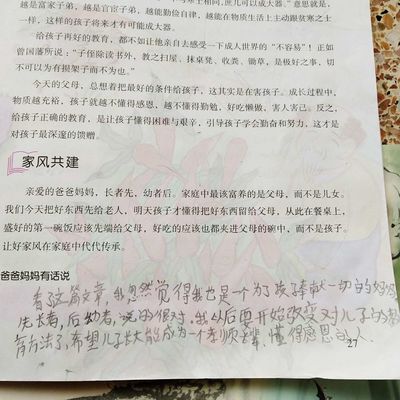 越是富家子弟，越是官宦子弟，越能勤俭自律，越能在物质生活上主动跟贫寒之士
一样，这样的孩子将来才有可能成大器。
给孩子再好的教育，都不如让他亲自去感受一下成人世界的“不容易”！正如
曾国藩所说：“子侄除读书外，教之扫屋、抹桌凳、收粪、锄草，是极好之事，切
不可以为有损架子而不为也。”
今天的父母，总想着把最好的条件给孩子，这其实是在害孩子。成长过程中，
物质越充裕，孩子就越不懂得感恩，越不懂得勤勉，好吃懒做，害人害己。反之，
给孩子正确的教育，是让孩子懂得困难与艰辛，引导孩子学会勤奋和努力，这才是
对孩子最深邃的馈赠。
家风共建
亲爱的爸爸妈妈，长者先，幼者后。家庭中最该富养的是父母，而不是儿女。
我们今天把好东西先给老人，明天孩子才懂得把好东西留给父母，从此在餐桌上，
盛好的第一碗饭应该先端给父母，好吃的应该也都夹进父母的碗中，而不是孩子。
让好家风在家庭中代代传承。
爸爸妈妈有话说
看这篇文章，我忽然觉得我也是一个为了孩子奉献一切的好妈
先长者，后幼者，说的很对，我以后要开始改变对儿子的教
育方法了，希望儿子长大能成为一个孝顺长辈、懂得感恩的人
27